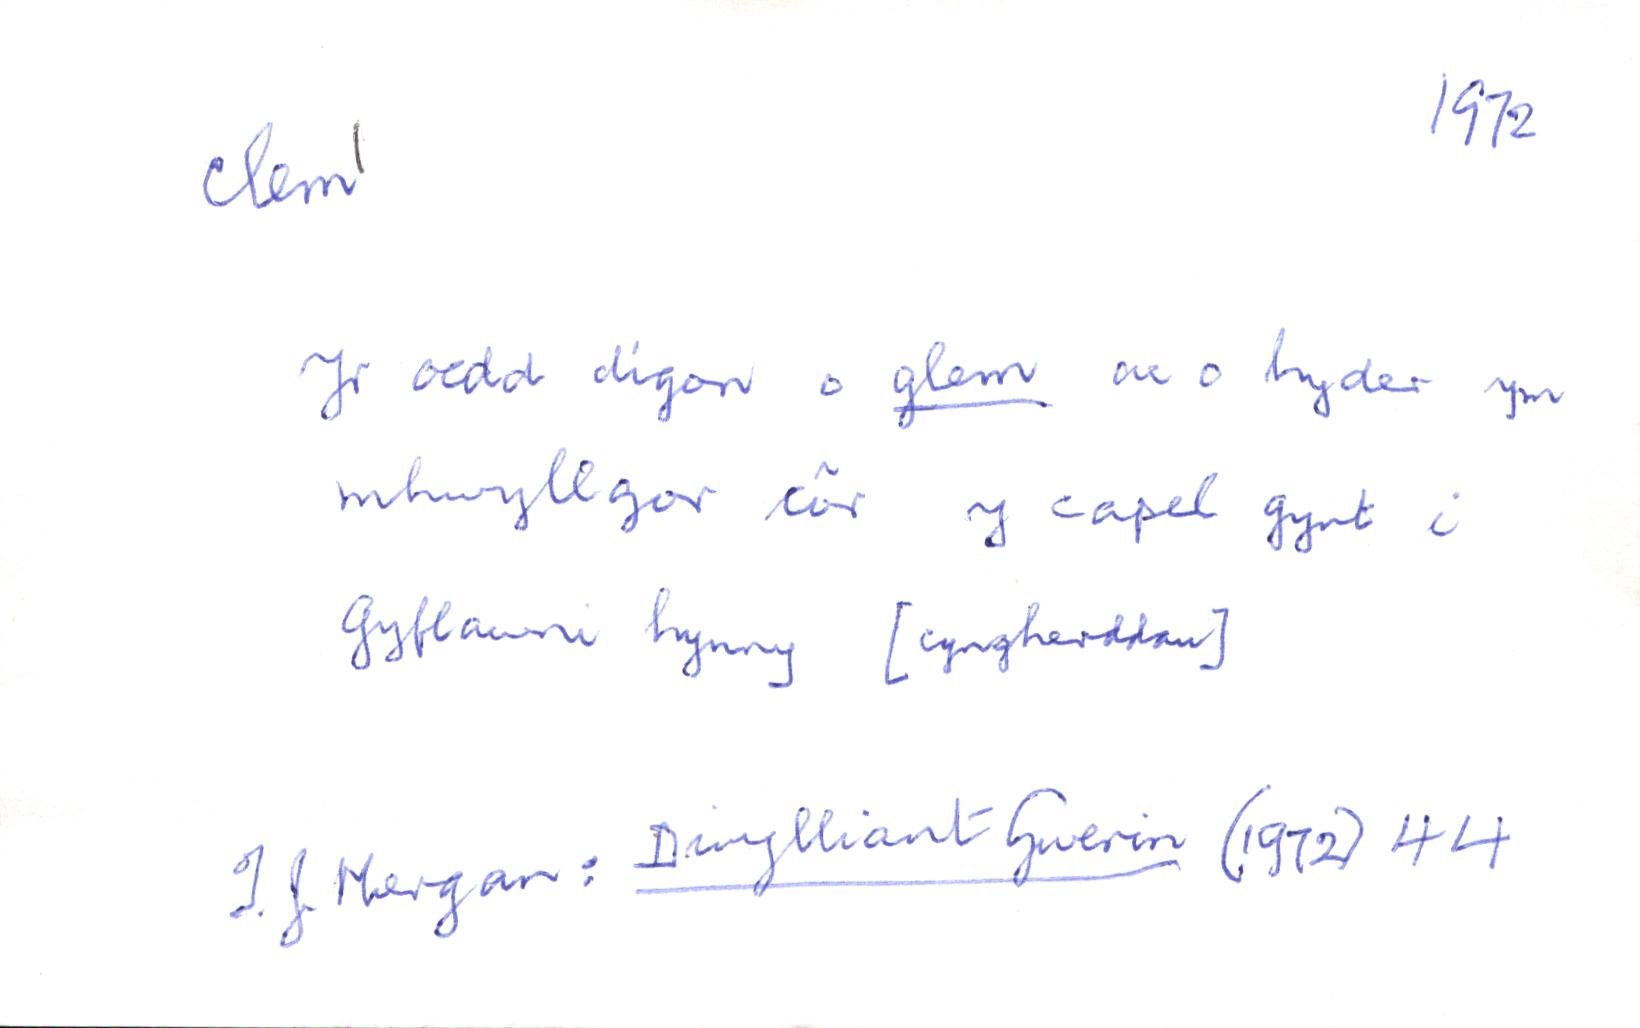 1972
clem¹
Yr oedd digon o glem ac o hyder ym
mhwyllgor côr y capel gynt i
Gyflawni hynny [cyngherddau]
T. J. Morgan: Diwylliant Gwerin (1972) 44